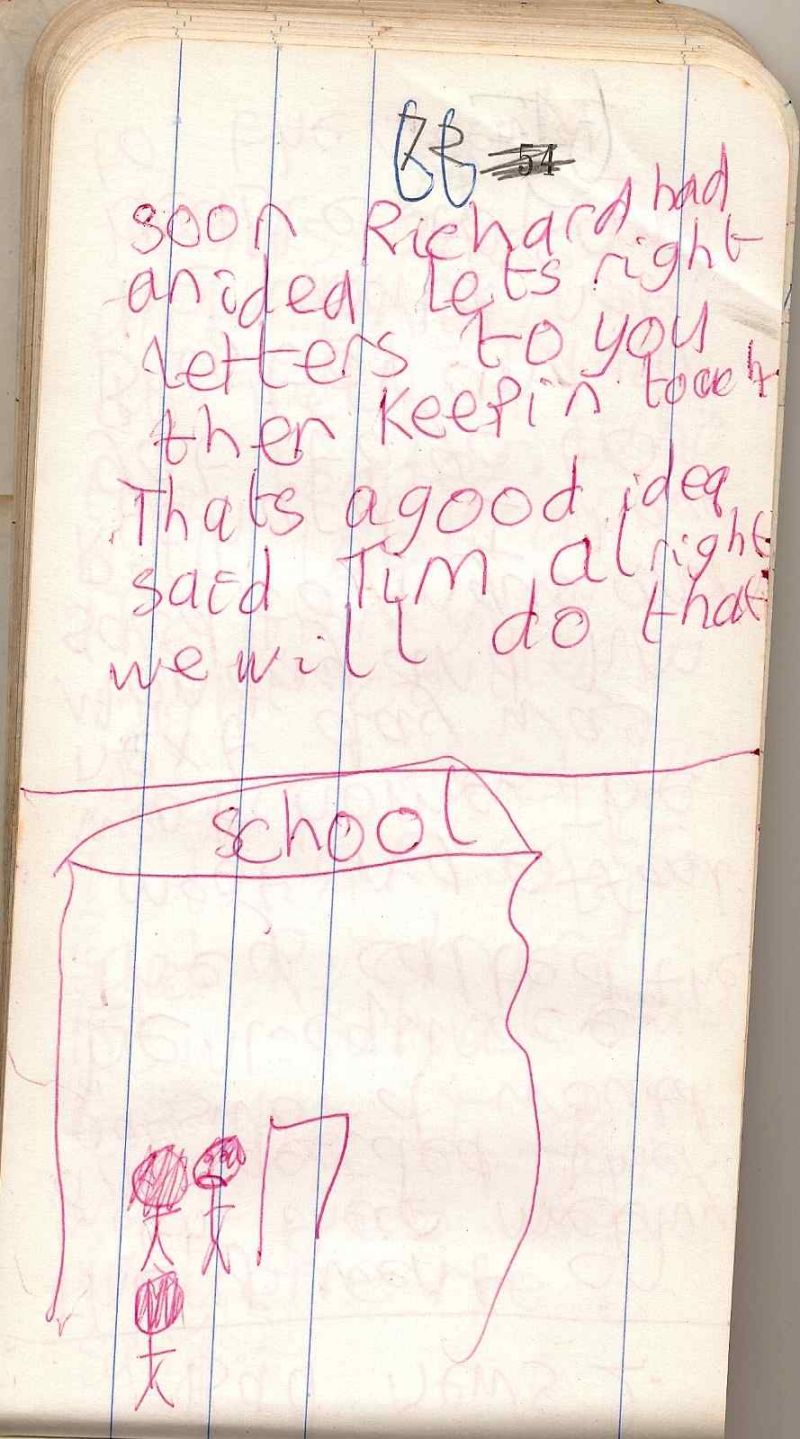 54
soon Richard had
an idea lets right
letters to you
then Keep in toech
Thats a good idea
said Tim alright
we will do that
school